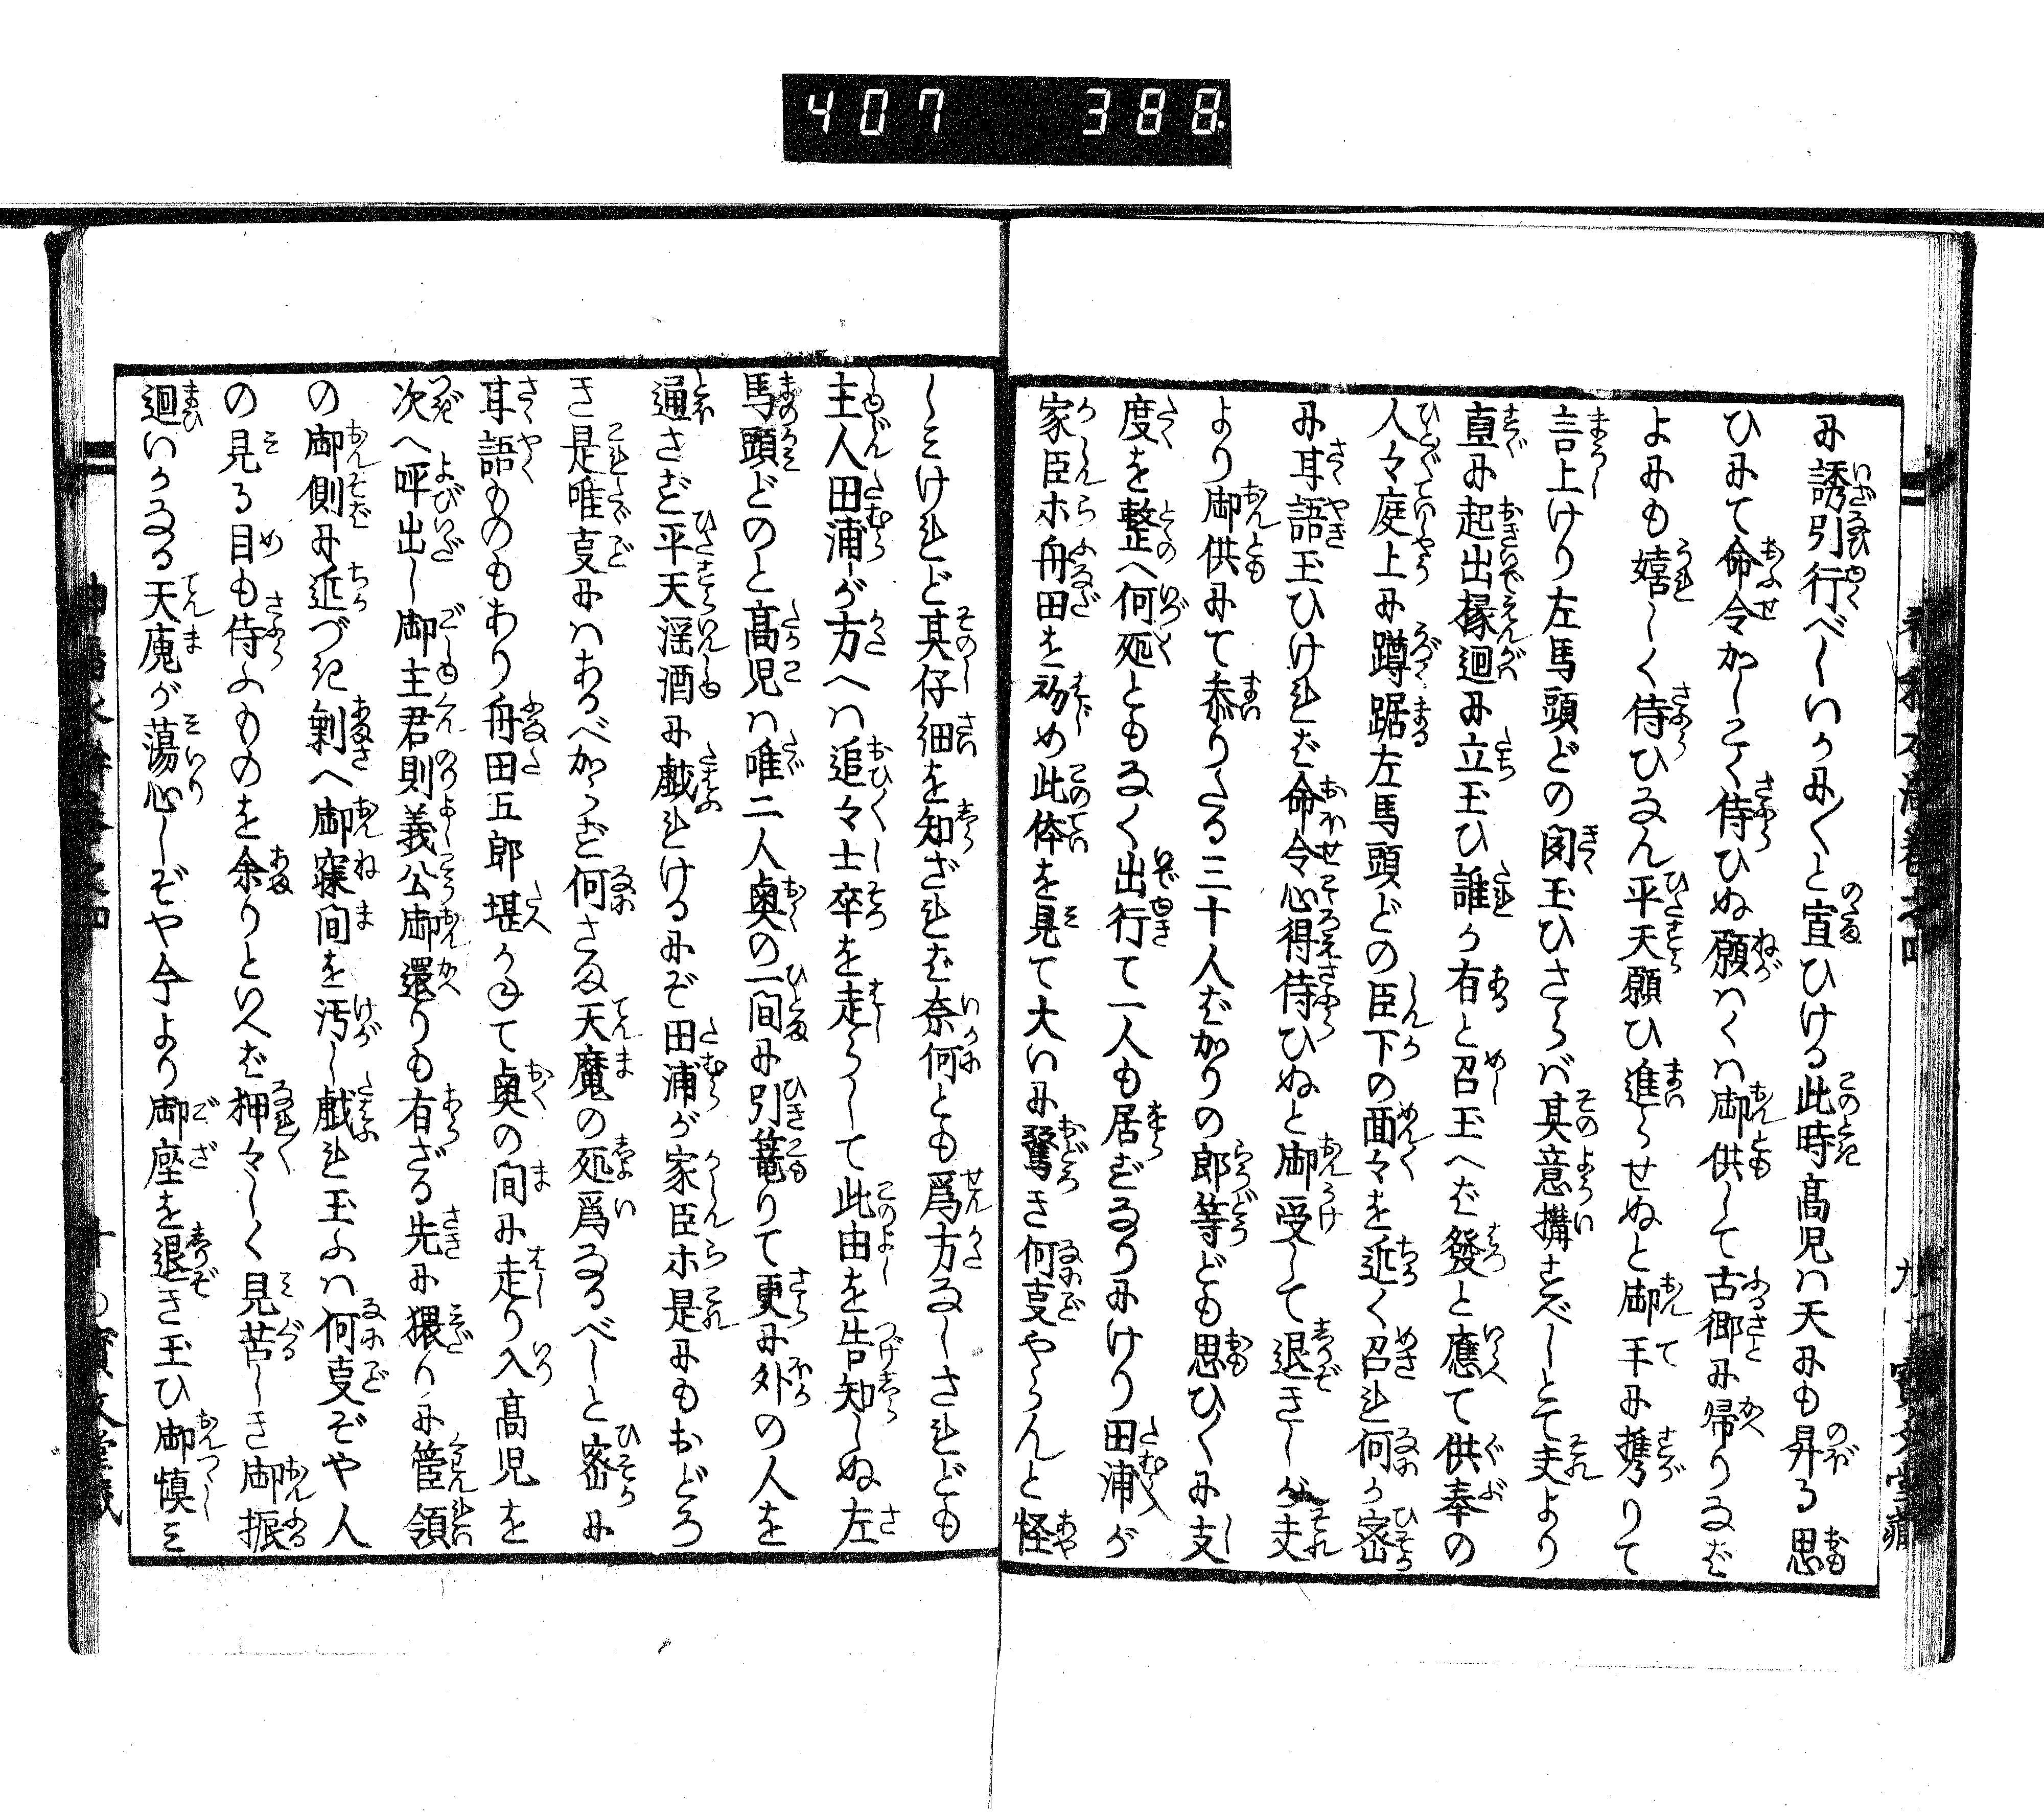 407 388
に誘引行べしいかに〳〵と宣ひける此時高児ハ天にも昇る思
ひにて命令かしこく侍ひぬ願ハくハ御供して古郷に帰りなば
よにも嬉しく侍ひなん平天願ひ進らせぬと御手に携りて
言上けり左馬頭どの聞玉ひさらバ其意搆さべしとて夫より
直に起出椽廻に立玉ひ誰か有と召玉へば發と應て供奉の
人々庭上に蹲踞左馬頭どの臣下の面々を近く召れ何か密
に耳語玉ひければ命令心得侍ひぬと御受して退きしが夫
より御供にて恭りたる三十人ばかりの郎等ども思ひ〳〵に支
度を整へ何処ともなく出行て一人も居ずなりにけり田浦が
家臣ホ舟田を初め此体を見て大いに驚き何㕝やらんと怪
しみけれど其仔細を知ざれば奈何とも爲方なしされども
主人田浦が方へハ追々士卒を走らして此由を告知しぬ左
馬頭どのと高児ハ唯二人奥の一間に引篭りて更に外の人を
通さず平天滛酒に戯れけるにぞ田浦が家臣ホ是にもおどろ
き是唯㕝にハあるべからず何さま天魔の処爲なるべしと密に
耳語ものもあり舟田五郎堪かねて奥の間に走り入高児を
次へ呼出し御主君則義公御還りも有ざる先に猥りに管領
の御側に近づき剰へ御寐間を汚し戯れ玉ふハ何㕝ぞや人
の見る目も侍ふものを余りといへば狎々しく見苦しき御振
廻いかなる天魔が蕩心しぞや今より御座を退き玉ひ御慎み